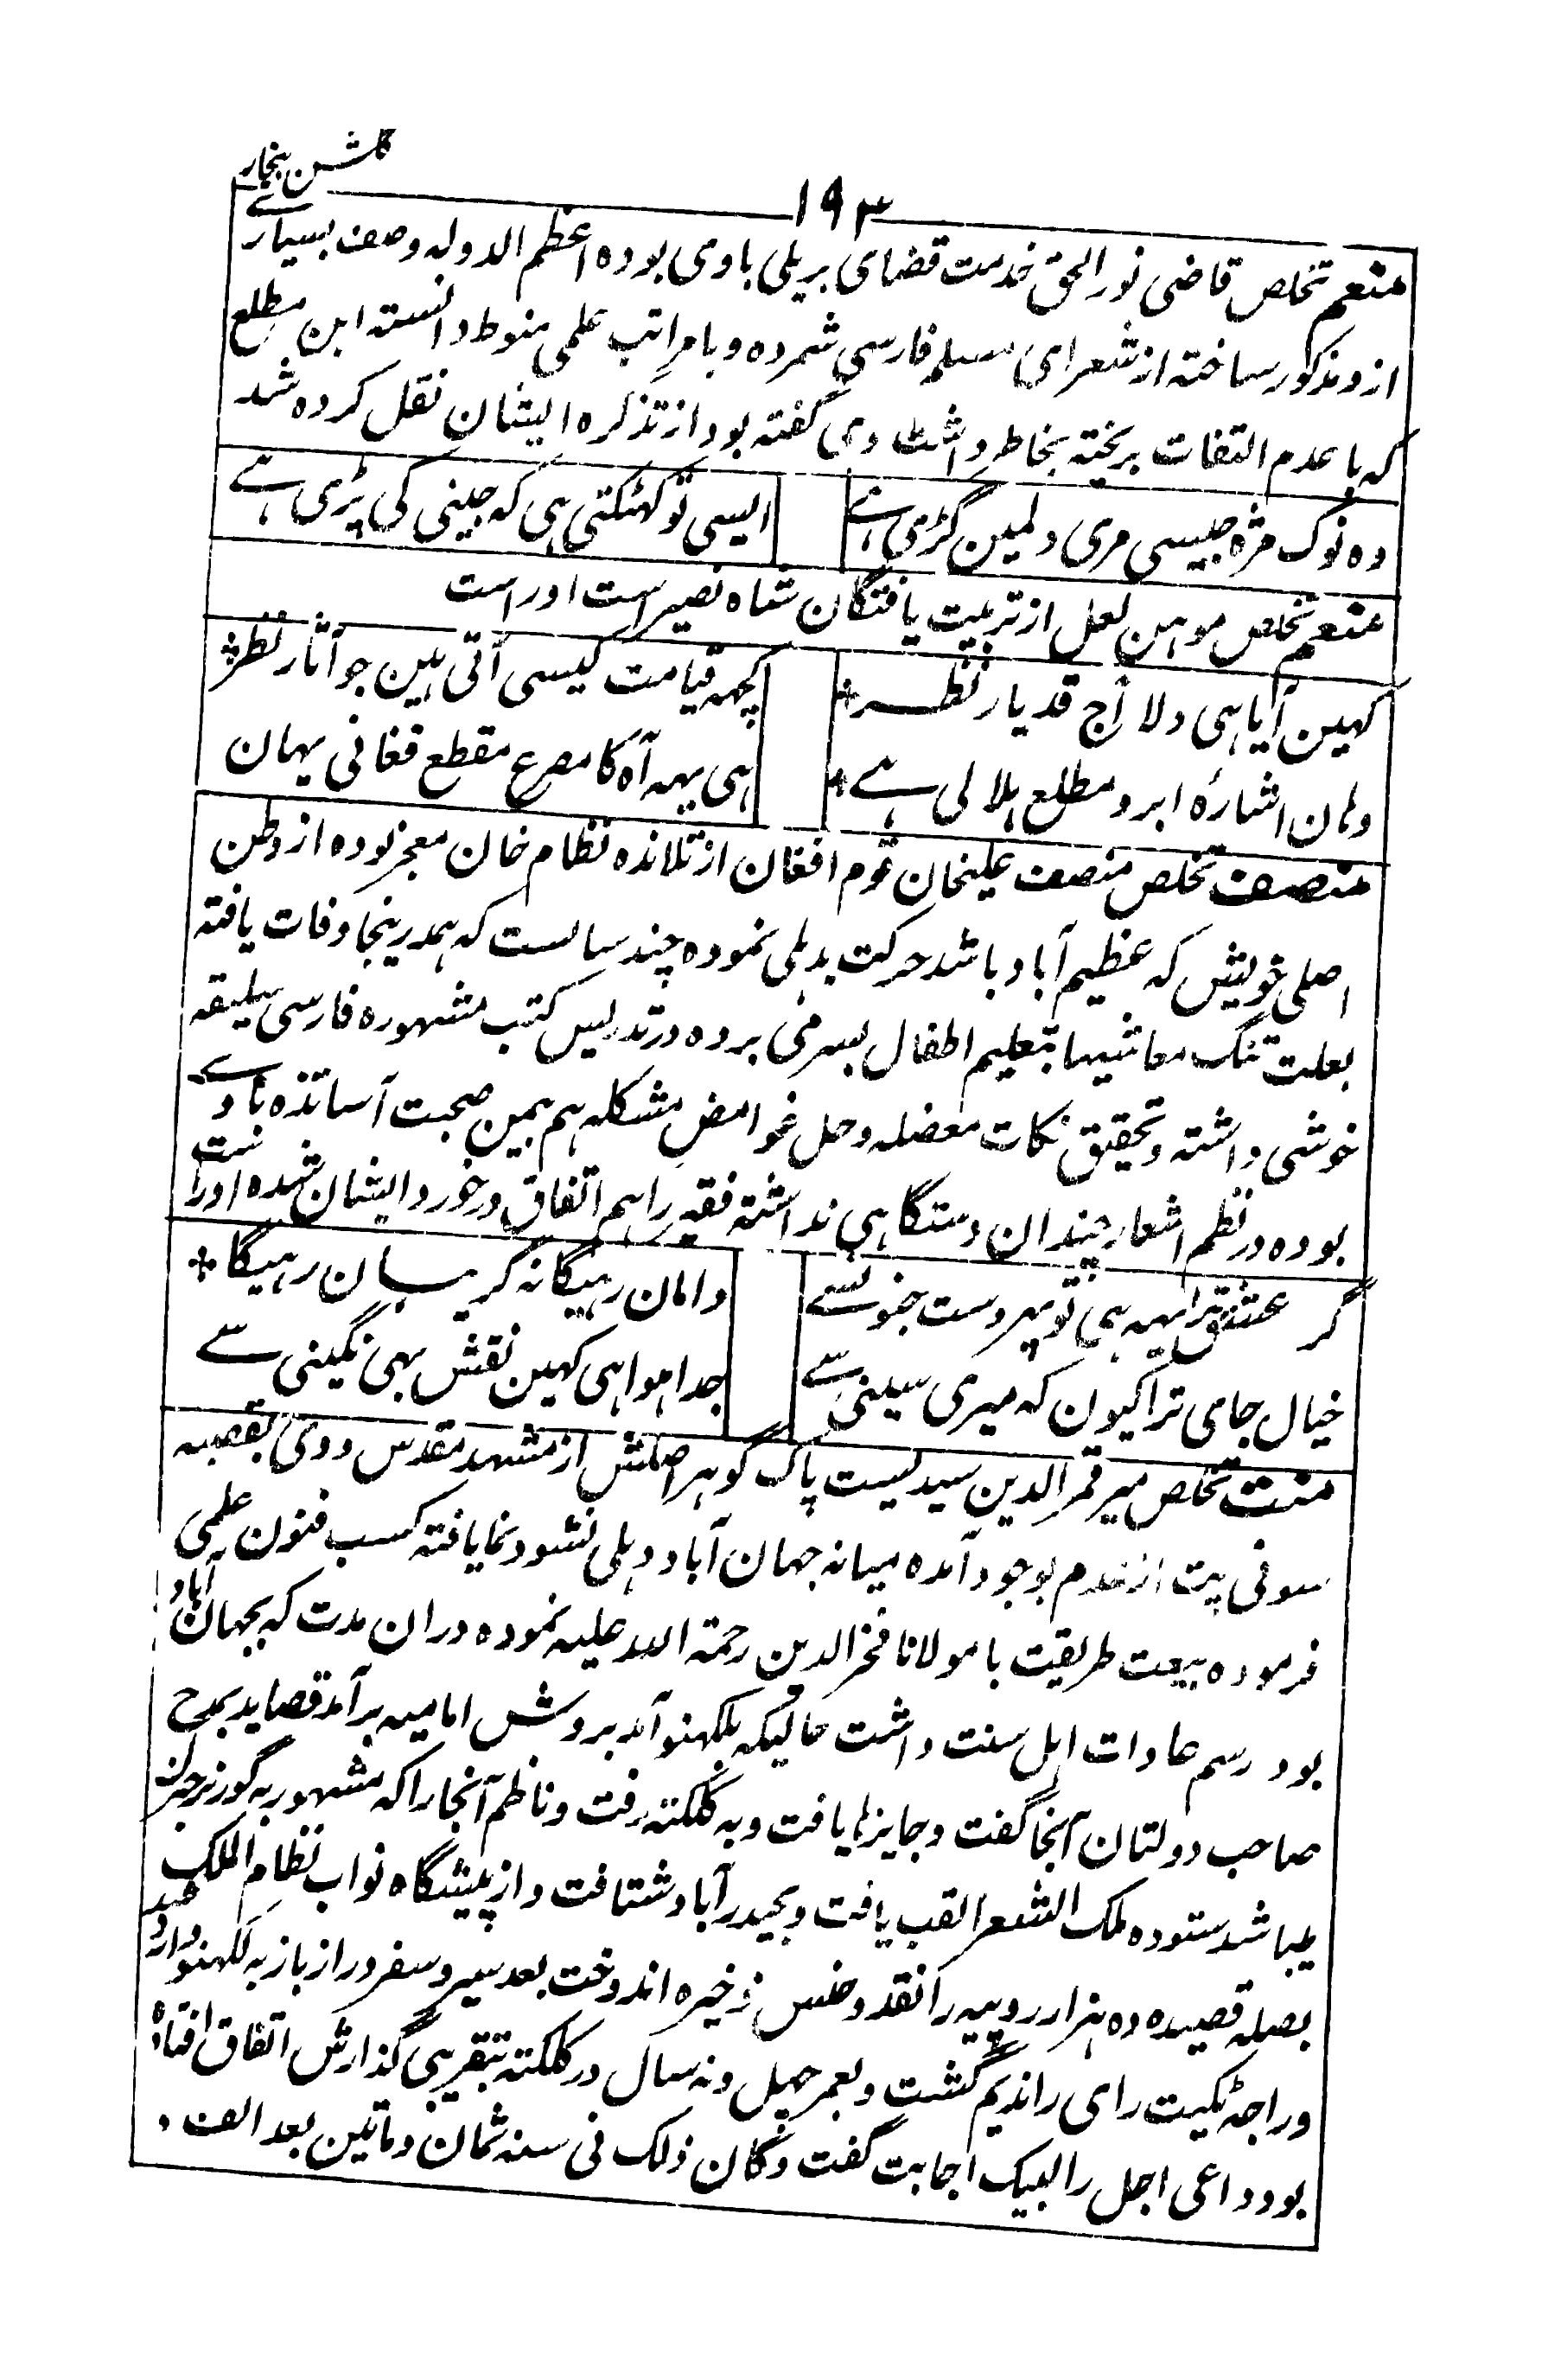 گلشن بیخار
۱۹۳
منعم تخلص قاضی نور الحق خدمت قضای بریلی باوی بوده اعظم الدولہ وصف بسیارے
ازو مذکور ساخته از شعرای مسلم فارسی شمرده و بامراتب علمی منوط دانسته این مطلع
که با عدم التفات بریخته بخاطر داشت وی گفته بود از تذکره ایشان نقل کرده شد
وہ نوک مژہ جیسی مری دلمین گڑی ہے
ایسی تو کھٹکتی ہی کہ جینی کی پڑی ہے
منعم تخلص موہن لعل از تربیت یافتگان شاہ نصیر است اوراست
کہین آیا ہی دلا آج قد یار نظر
کچھ قیامت کیسی آتی ہین جو آثار نظر
وہان اشارۂ ابرو مطلع ہلالی ہے
ہی یہہ آہ کا مصرع مقطع فغانی یہان
منصف تخلص منصف علیخان قوم افغان از تلامذه نظام خان معجز بوده از وطن
اصلی خویش که عظیم آباد باشد حرکت بدہلی نموده چند سالست که ہمدرینجا وفات یافته
بعلت تنک معاشیہا بتعلیم اطفال بسر می برده در تدریس کتب مشہوره فارسی سلیقہ
خوشی داشته و تحقیق نکات معضلہ و حل غوامض مشکلہ ہم بمین صحبت آساتذه نادے
بوده در نظم اشعار چندان دستگاہی نداشته فقیر را ہم اتفاق در خورد ایشان شده اوراست
گر عشق ترا یہہ ہی تو پھر دست جنونسے
دامان رہیگا نہ گریبان رہیگا
خیال جای ترا کیون کہ میری سینی سے
جدا ہوا ہی کہین نقش بہی نگینی سے
منت تخلص میر قمر الدین سیدیست پاک گوہر اصلش از مشہد مقدس ووی بقصبہ
سونی پت از عدم بوجود آمده میانہ جہان آباد دہلی نشو و نما یافته کسب فنون علمی
فرموده بیعت طریقت با مولانا فخر الدین رحمة اللہ علیہ نموده دران مدت که بجہان آباد
بود رسم عادات اہل سنت داشت حالیکہ بلکہنو آمد بروش امامیہ برآمد قصاید بمدح
صاحب دولتان آنجا گفت و جایزہا یافت و بہ کلکتہ رفت و ناظم آنجا را که مشہور بہ گورنر جنرل
میباشد ستوده ملک الشعرا لقب یافت و بحیدر آباد شتافت و از پیشگاه نواب نظام الملک
بصلہ قصیده ده ہزار روپیہ را نقد و جنس ذخیره اندوخت بعد سیر و سفر دراز باز بہ لکہنو وارد شد
و راجہ ٹکیت رای را ندیم گشت و بعمر چہل و نہ سال در کلکتہ بتقریبی گذارش اتفاق افتاده
بود داعی اجل را لبیک اجابت گفت وکان ذلک فی سنہ ثمان و مأتین بعد الف